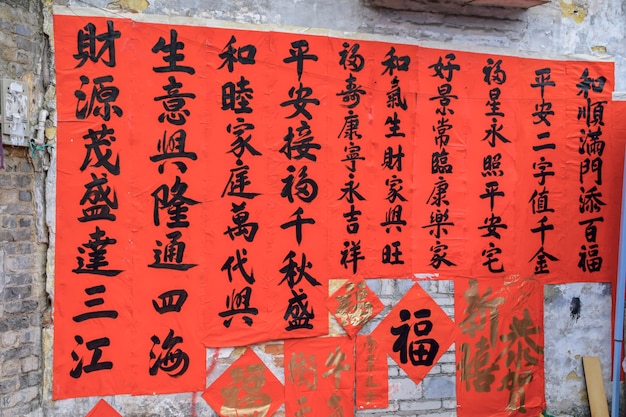 和順滿門添百福
平安二字值千金
福星永照平安宅
好景常臨康樂家
和氣生財家興旺
福壽康寧永吉祥
平安接福千秋盛
和睦家庭萬代興
生意興隆通四海
財源茂盛達三江
恭賀
新禧
福
福